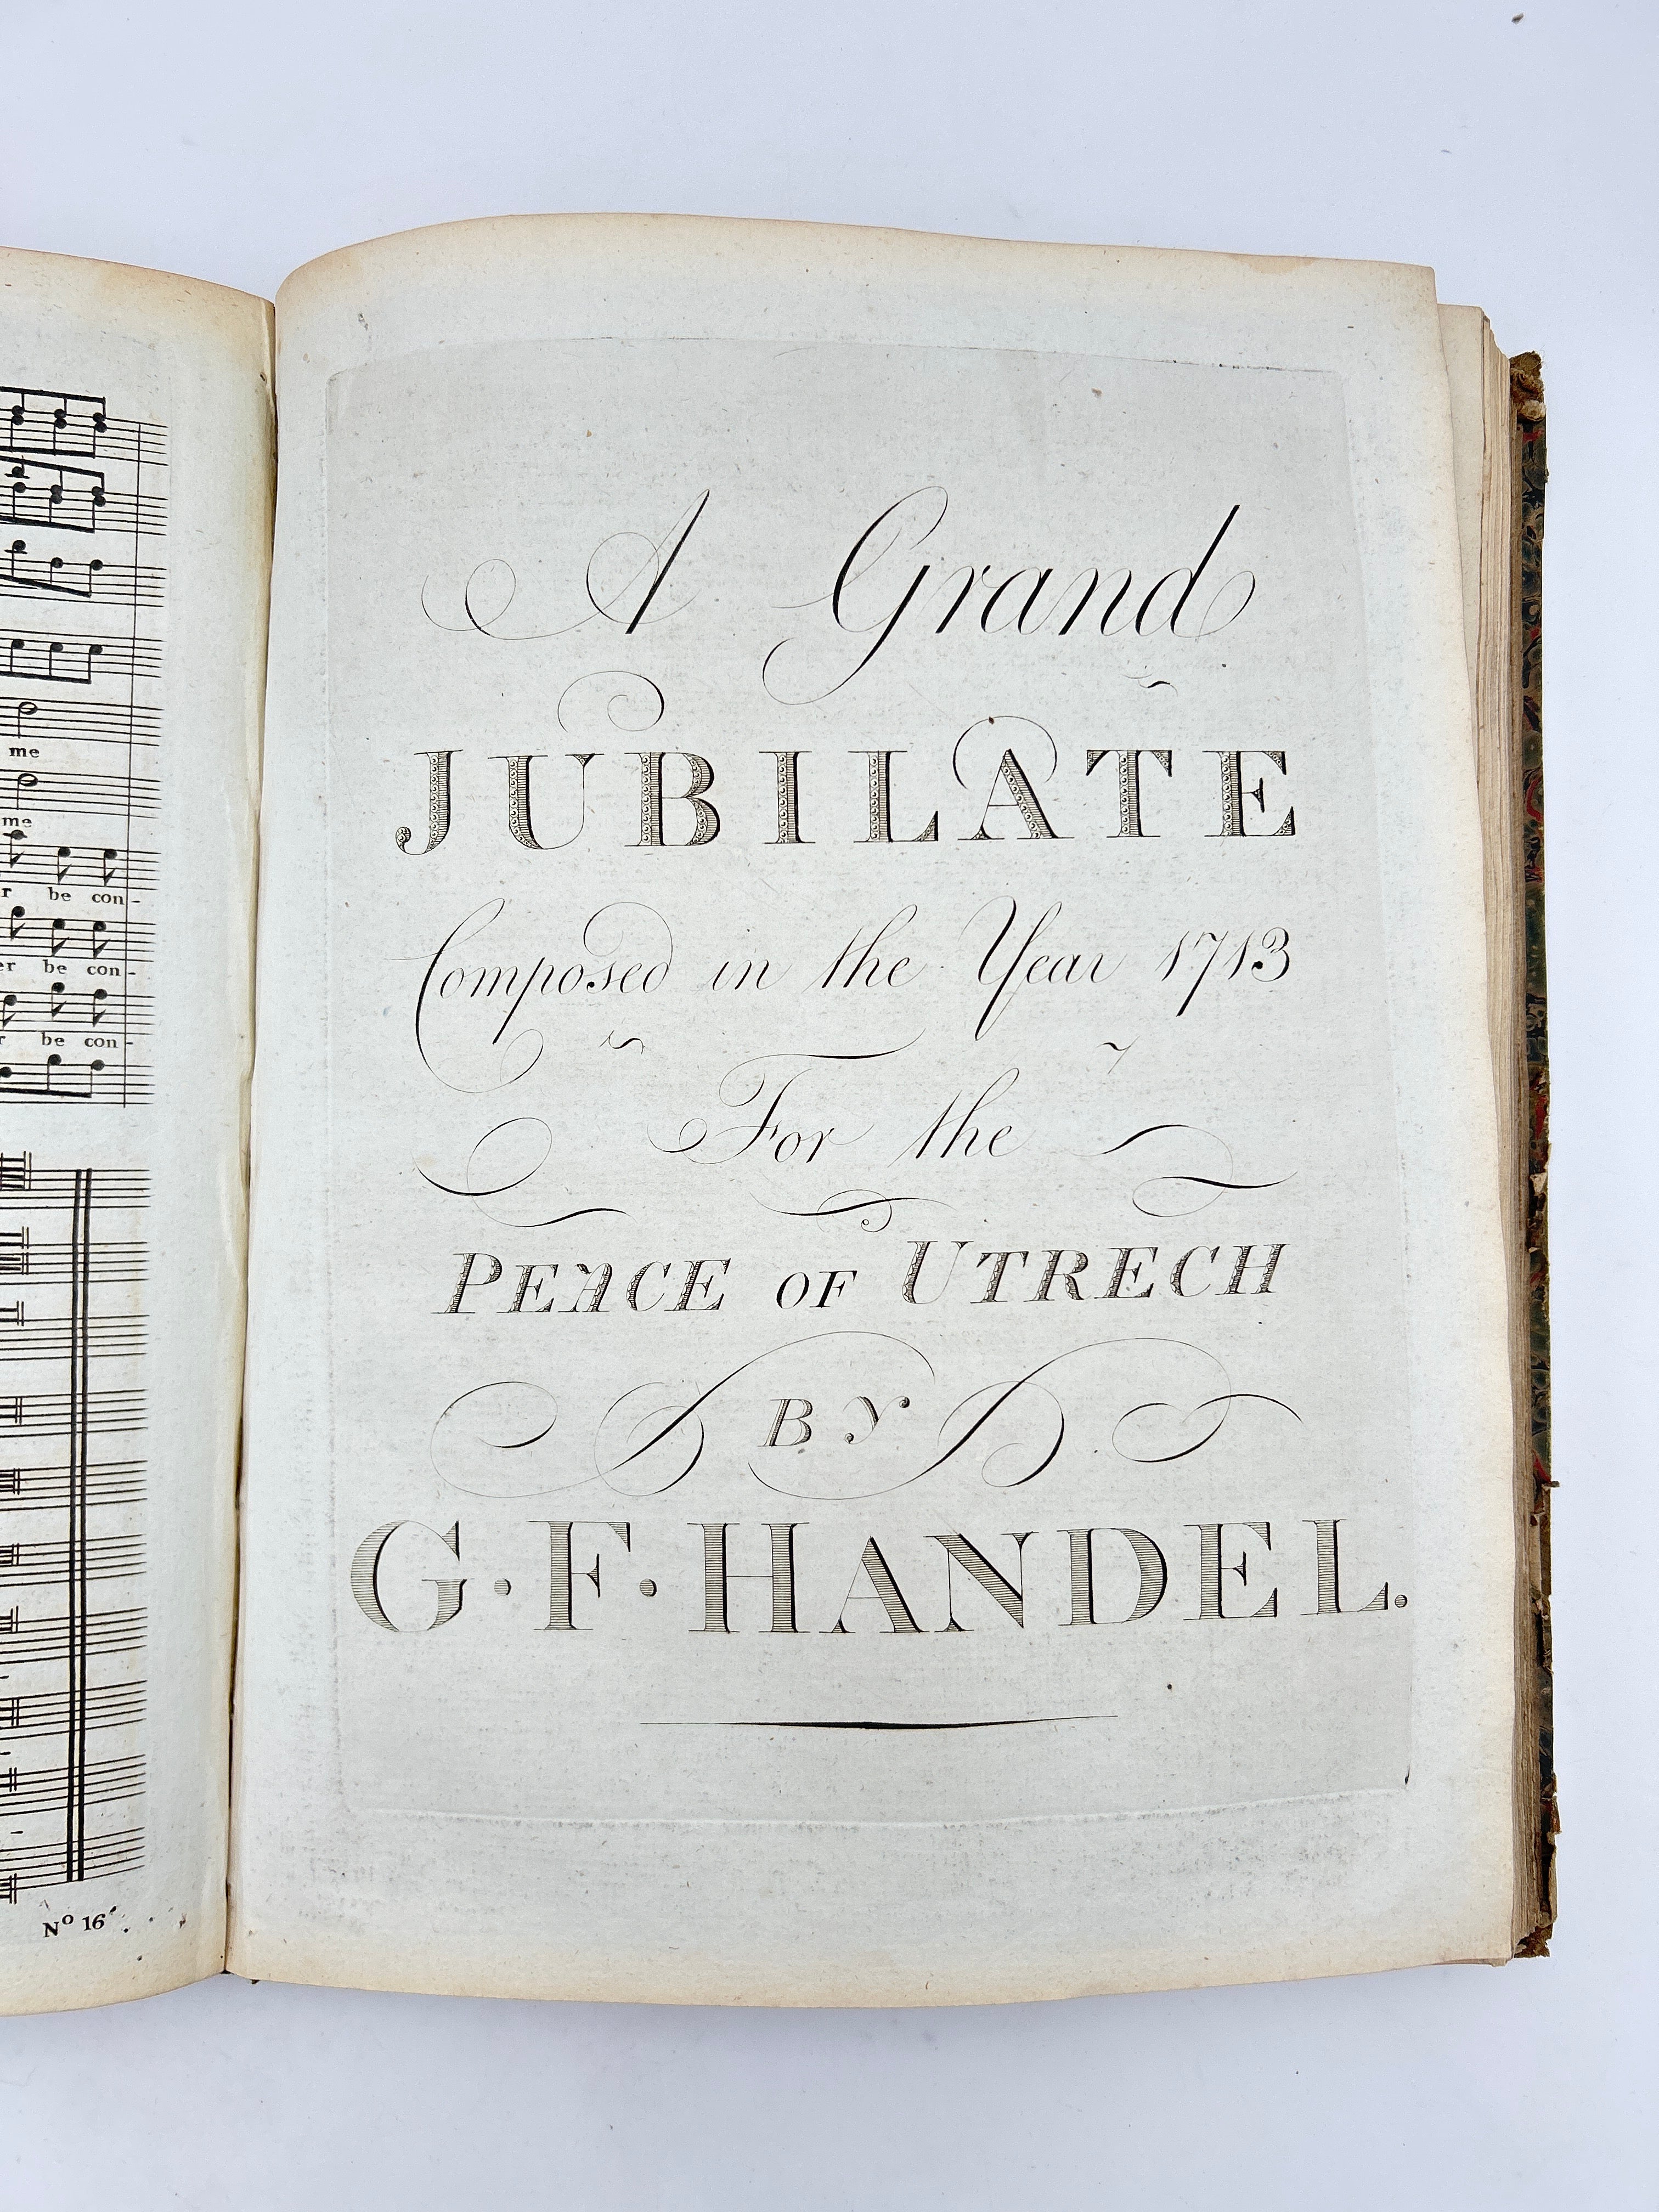 me
me
be con-
er be con-
r be con-
Nº 16
A Grand
JUBILATE
Composed in the Year 1713
For the
PEACE OF UTRECH
BY
G·F·HANDEL.